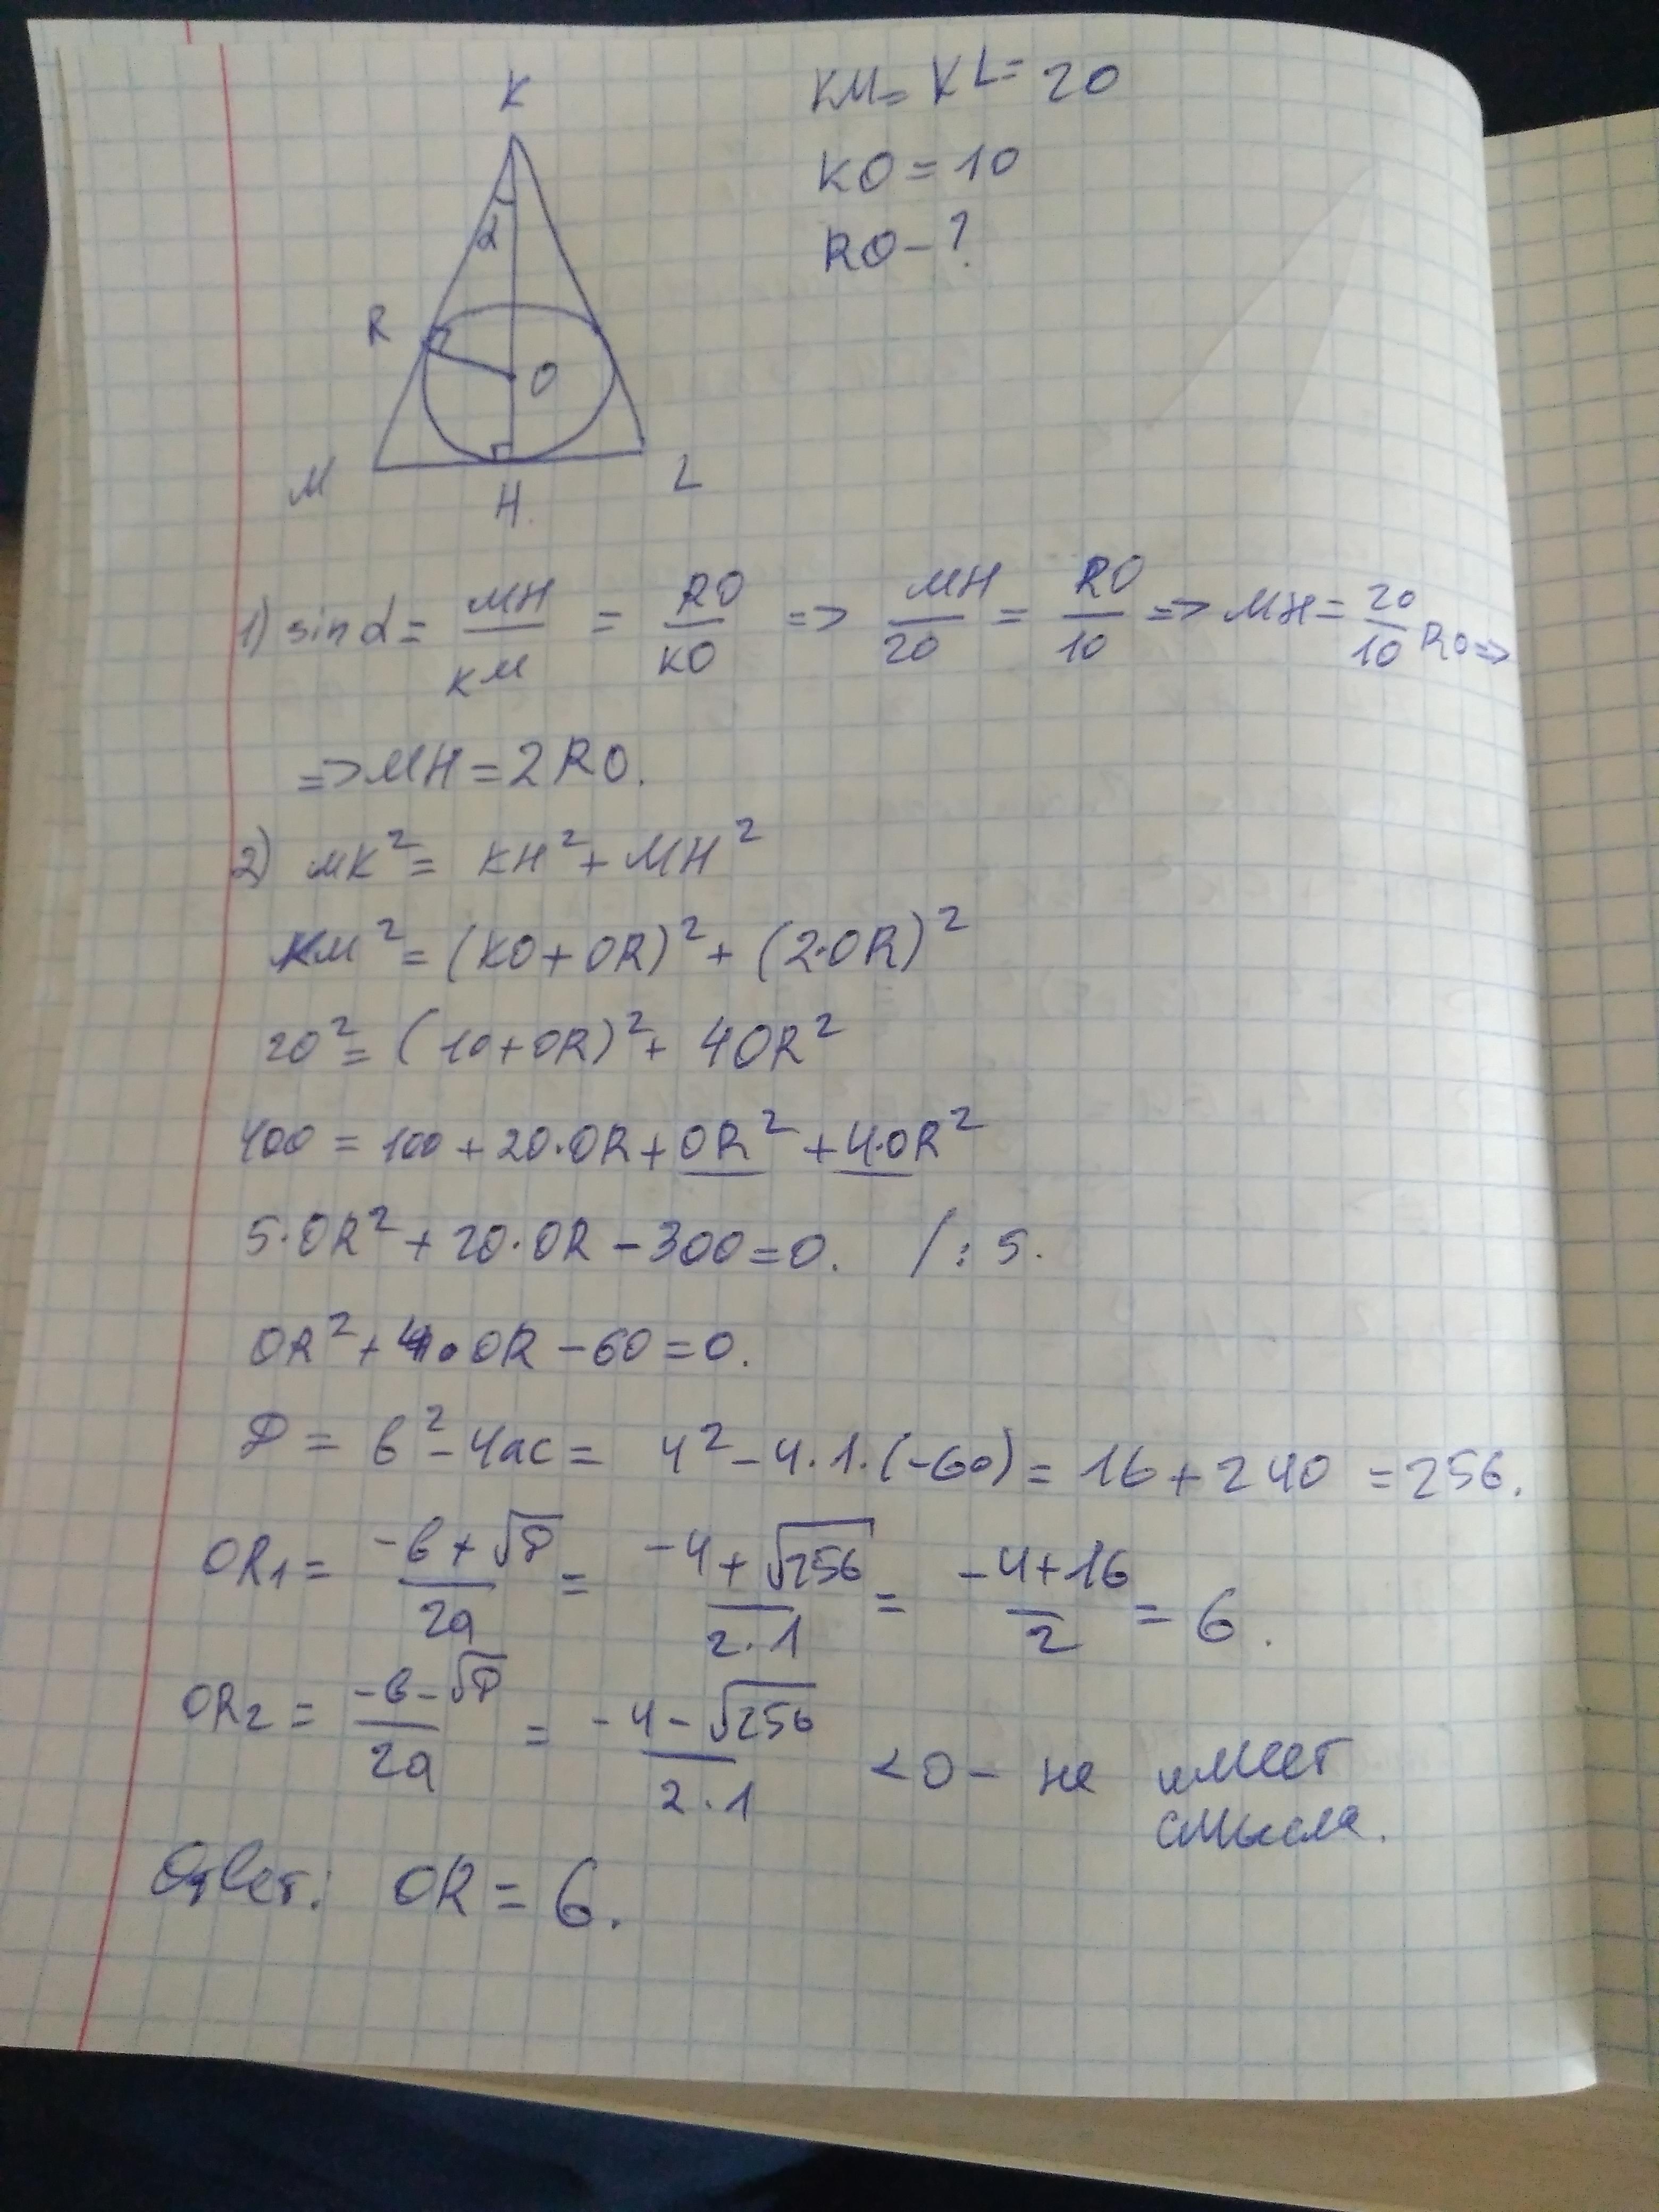 K
α
R
O
M
H.
L
KM = KL = 20
KO = 10
RO - ?
1) sin α = MH/KM = RO/KO => MH/20 = RO/10 => MH = 20/10 RO =>
=> MH = 2RO.
2) MK² = KH² + MH²
KM² = (KO + OR)² + (2·OR)²
20² = (10 + OR)² + 4OR²
400 = 100 + 20·OR + OR² + 4·OR²
5·OR² + 20·OR - 300 = 0. / : 5.
OR² + 4·OR - 60 = 0.
D = b² - 4ac = 4² - 4·1·(-60) = 16 + 240 = 256.
OR₁ = (-b + √D)/2a = (-4 + √256)/2·1 = (-4 + 16)/2 = 6.
OR₂ = (-b - √D)/2a = (-4 - √256)/2·1 < 0 - не имеет
смысла.
Ответ: OR = 6.